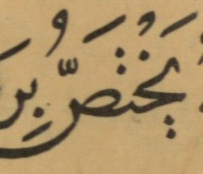 يَخْتَصُّ بِرَ